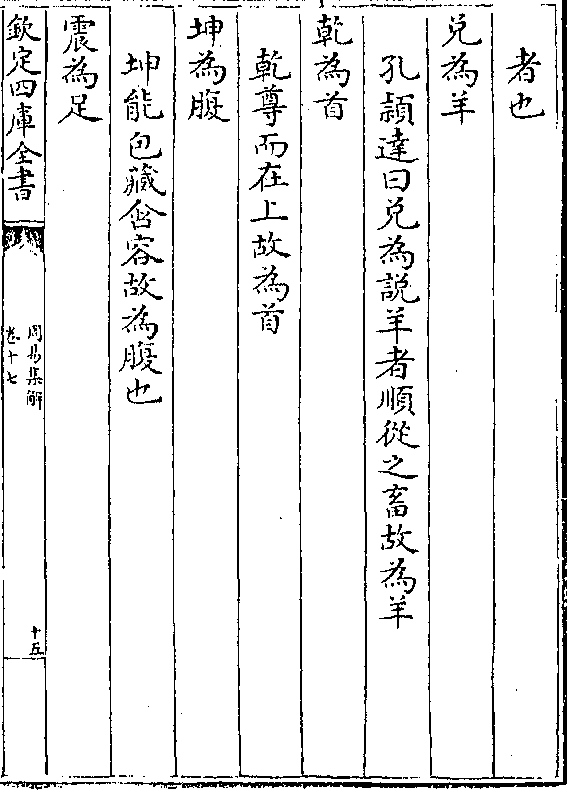 者也
兑為羊
孔頴達曰兑為説羊者順從之畜故為羊
乾為首
乾尊而在上故為首
坤為腹
坤能包藏含容故為腹也
震為足
欽定四庫全書
周易集解
卷十七
十五